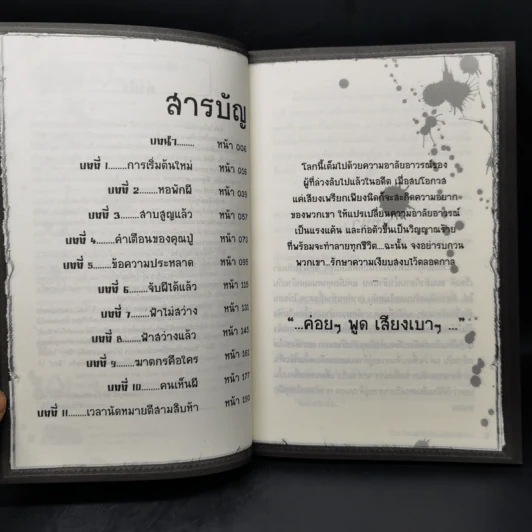 สารบัญ
บทนำ........หน้า 006
บทที่ 1........การเริ่มต้นใหม่ หน้า 058
บทที่ 2........หอพักผี หน้า 039
บทที่ 3........สาบสูญแล้ว หน้า 057
บทที่ 4........คำเตือนของคุณปู่ หน้า 070
บทที่ 5........ข้อความประหลาด หน้า 095
บทที่ 6........จับผีได้แล้ว หน้า 115
บทที่ 7........ฟ้าไม่สว่าง หน้า 131
บทที่ 8........ฟ้าสว่างแล้ว หน้า 145
บทที่ 9........ฆาตกรคือใคร หน้า 161
บทที่ 10........คนเห็นผี หน้า 177
บทที่ 11........เวลานัดหมายตีสามสิบห้า หน้า 190
โลกนี้เต็มไปด้วยความอาลัยอาวรณ์ของ
ผู้ที่ล่วงลับไปแล้วในอดีต เมื่อสบโอกาส
แค่เสียงเพรียกเพียงนิดก็จะสะกิดความอยาก
ของพวกเขา ให้แปรเปลี่ยนความอาลัยอาวรณ์
เป็นแรงแค้น และก่อตัวขึ้นเป็นวิญญาณร้าย
ที่พร้อมจะทำลายทุกชีวิต...ฉะนั้น จงอย่ารบกวน
พวกเขา...รักษาความเงียบสงบไว้ตลอดกาล
“...ค่อยๆ พูด เสียงเบาๆ ...”